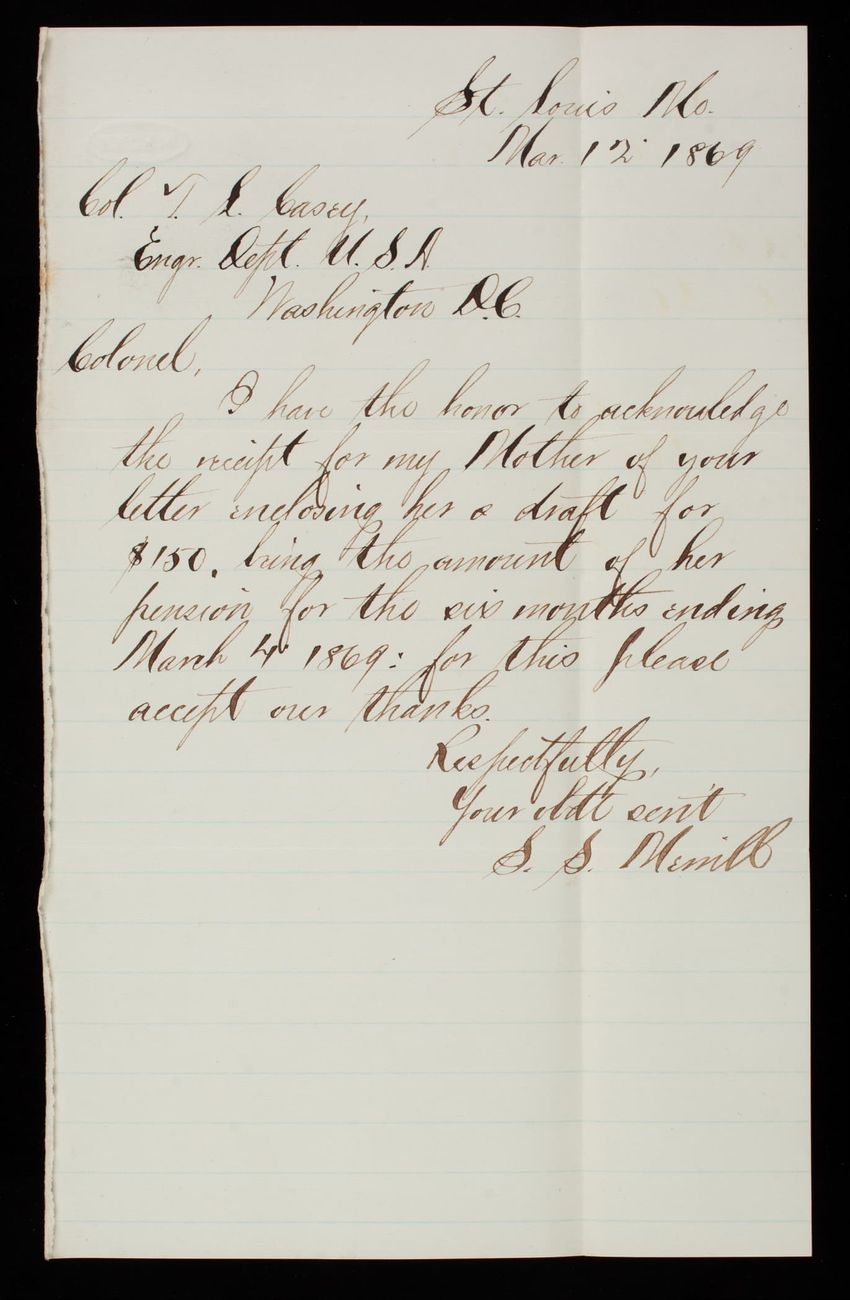 St. Louis Mo.
Mar. 12 1869
Col. T. L. Casey,
Engr. Dept. U.S.A.
Washington D.C.
Colonel,
I have the honor to acknowledge
the receipt for my Mother of your
letter enclosing her a draft for
$150. being the amount of her
pension for the six months ending
March 4 1869: for this please
accept our thanks.
Respectfully,
Your obdt servt
S. S. Merrill